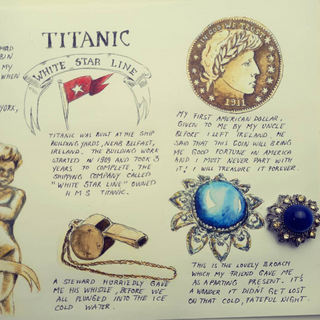 TITANIC
WHITE STAR LINE
BIN
MY
WHEN
YORK,
TITANIC WAS BUILT AT THE SHIP
BUILDING YARDS, NEAR BELFAST,
IRELAND. THE BUILDING WORK
STARTED IN 1909 AND TOOK 3
YEARS TO COMPLETE. THE
SHIPPING COMPANY CALLED
"WHITE STAR LINE" OWNED
HMS TITANIC.
IN GOD WE TRUST
1911
MY FIRST AMERICAN DOLLAR,
GIVEN TO ME BY MY UNCLE
BEFORE I LEFT IRELAND. HE
SAID THAT THIS COIN WILL BRING
ME GOOD FORTUNE IN AMERICA
AND I MOST NEVER PART WITH
IT! I WILL TREASURE IT FOREVER.
A STEWARD HURRIEDLY GAVE
ME HIS WHISTLE, BEFORE WE
ALL PLUNGED INTO THE ICE
COLD WATER.
THIS IS THE LOVELY BROACH
WHICH MY FRIEND GAVE ME
AS A PARTING PRESENT. IT'S
A WONDER IT DIDN'T GET LOST
ON THAT COLD, FATEFUL NIGHT.